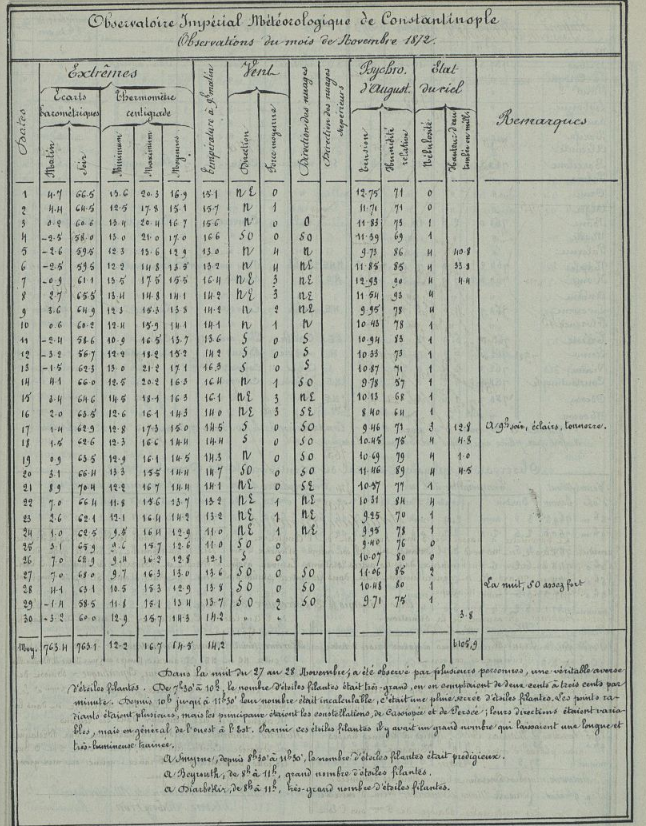 Observatoire Impérial Météorologique de Constantinople
Observations du mois de Novembre 1872.
Dates
Extrêmes
Écarts barométriques
Matin
Soir
Thermomètre centigrade
Minimum
Maximum
Moyenne
Température à 9h matin
Vent
Direction
Force moyenne
Direction des nuages
Direction des nuages supérieurs
Psychro. d'August.
Tension
Humidité relative
État du ciel
Nébulosité
Hauteur d'eau tombée en mill.
Remarques
1 4.7 66.5 13.6 20.3 16.9 15.1 NE 0 12.75 71 0
2 4.4 64.5 12.5 17.8 15.1 15.7 N 1 11.71 71 0
3 0.2 60.6 13.4 20.4 16.7 15.6 N 0 0 11.83 73 1
4 -2.5 58.0 13.0 21.0 17.0 16.6 SO 0 SO 11.39 69 1
5 -2.6 59.5 12.3 13.6 12.9 13.0 N 4 N 9.73 86 4 40.8
6 -2.5 59.5 12.2 14.8 13.5 13.2 N 4 NE 11.85 85 4 33.8
7 -0.9 61.1 13.5 17.5 15.5 16.4 NE 3 NE 12.93 90 4 4.4
8 2.7 65.5 13.4 14.8 14.1 14.2 NE 3 NE 11.54 93 4
9 3.6 64.9 12.3 15.3 13.8 14.2 N 2 NE 9.95 78 4
10 0.6 60.2 12.4 15.9 14.1 14.1 N 1 N 10.43 78 1
11 -2.4 58.6 10.9 16.5 13.7 13.6 S 0 S 10.94 83 1
12 -3.2 56.7 12.2 18.2 15.2 14.2 S 0 S 10.33 73 1
13 -1.5 62.3 13.0 21.2 17.1 16.3 S 0 S 10.87 71 1
14 4.1 66.0 12.5 20.2 16.3 16.4 N 1 SO 9.78 57 1
15 3.4 64.6 14.5 18.1 16.3 16.1 NE 3 NE 10.13 68 1
16 2.0 63.5 12.6 16.1 14.3 14.0 NE 3 SE 8.40 64 1
17 1.4 62.9 12.8 17.3 15.0 14.5 S 0 SO 9.46 71 3 12.8 A 9h soir, éclairs, tonnerre.
18 1.5 62.6 12.3 16.6 14.4 14.4 S 0 SO 10.45 75 4 4.3
19 0.9 63.5 12.9 16.1 14.5 14.3 N 0 SO 10.69 79 4 1.0
20 3.1 66.4 13.3 15.5 14.4 14.7 SO 0 SO 11.46 89 4 4.5
21 8.9 70.4 12.2 16.7 14.4 14.1 NE 0 SE 10.37 77 1
22 7.0 66.4 11.8 15.6 13.7 13.2 NE 1 NE 10.31 84 4
23 2.6 62.1 12.1 16.4 14.2 13.2 NE 1 NE 9.25 70 1
24 1.0 62.5 9.5 16.4 12.9 11.0 NE 1 NE 9.95 78 1
25 3.1 65.9 9.6 15.7 12.6 11.0 SO 0 9.40 76 0
26 7.0 62.9 9.4 16.2 12.8 12.1 S 0 10.07 80 0
27 7.0 68.0 9.7 16.3 13.0 13.6 SO 0 SO 11.06 85 2
28 4.1 63.1 10.5 15.3 12.9 13.8 SO 0 SO 10.48 80 1 La nuit, SO assez fort
29 -1.4 58.5 11.8 15.1 13.4 13.7 SO 2 SO 9.71 75 1
30 -3.2 60.0 12.9 15.7 14.3 14.2 " " 3.8
Moy. 763.4 763.1 12.2 16.7 14.5 14.2 105,9
Dans la nuit du 27 au 28 Novembre, a été observé par plusieurs personnes, une véritable averse
d'étoiles filantes. De 7h30' à 10h, le nombre d'étoiles filantes était très-grand, on en comptaient de deux cents à trois cents par
minute. Depuis 10h jusqu'à 11h30' leur nombre était incalculable, c'était une pluie serrée d'étoiles filantes. Les points ra-
diants étaient plusieurs, mais les principaux étaient les constellations, de Cassiopée et de Persée; leurs directions étaient varia-
bles, mais en général de l'ouest à l'Est. Parmi ces étoiles filantes il y avait un grand nombre qui laissaient une longue et
très-lumineuse trainée.
A Smyrne, depuis 8h30' à 11h30', le nombre d'étoiles filantes était prodigieux.
A Beyrouth, de 8h à 11h, grand nombre d'étoiles filantes.
A Diarbékir, de 8h à 11h, très-grand nombre d'étoiles filantes.